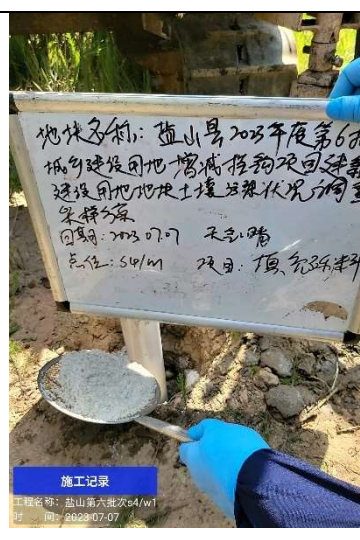 地块名称：盐山县2023年度第6批
城乡建设用地增减挂钩项目建新
建设用地地块土壤污染状况调查
采样方案
日期：2023.07.07 天气：晴
点位：S4/W1 项目：填充砾料
施工记录
工程名称：盐山第六批次s4/w1
时 间：2023-07-07